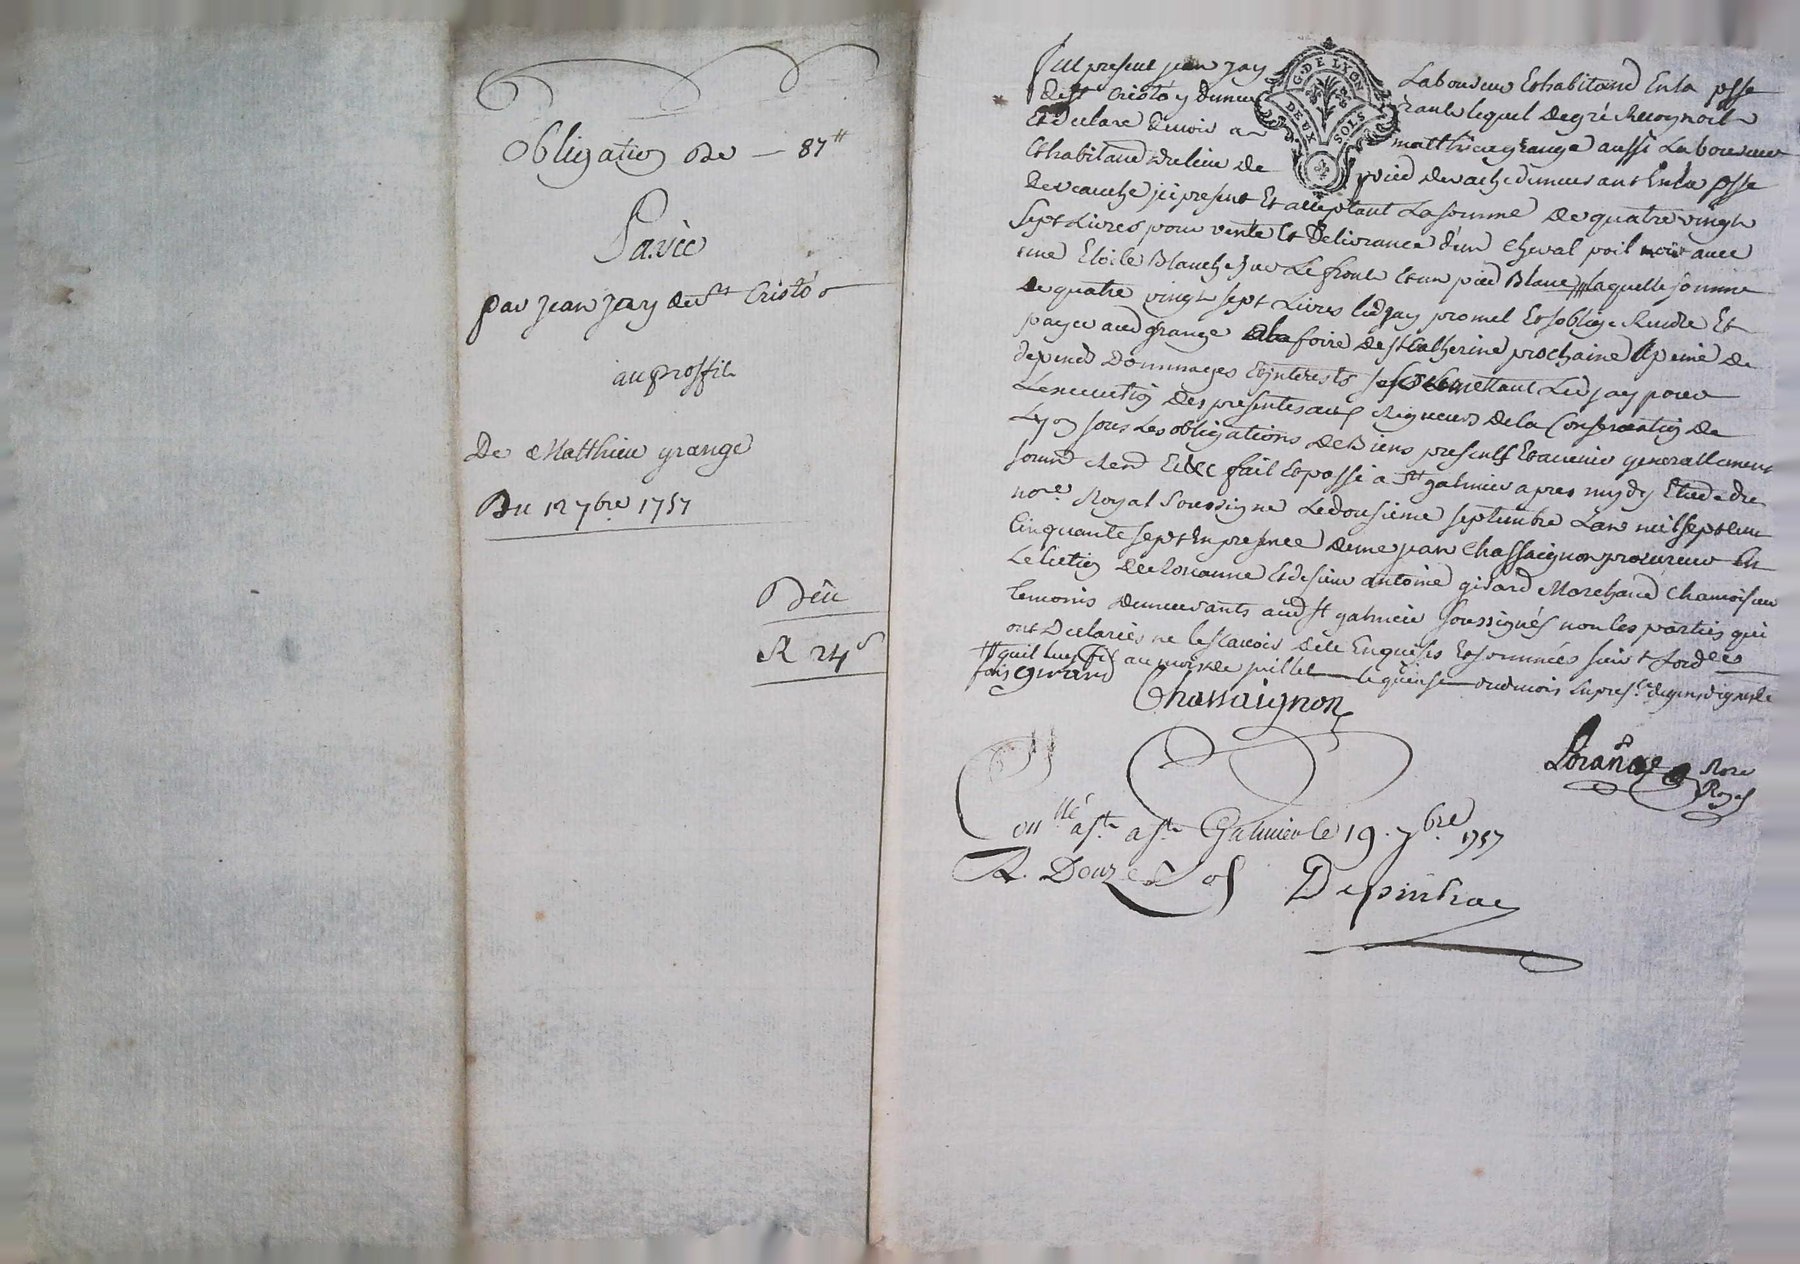 Obligation de — 87 ₶
Passée
par jean jay de St Cristô
au proffit
De Matthieu grange
Du 12 7bre 1757
Deü
R 24 s
G. DE LYON
DEUX SOLS
Fut present jean jay Laboureur Et habitand En la psse
de St Cristô y demeurant lequel de gré Reconoit
Et declare devoir a matthieu grange aussi Laboureur
Et habitand du lieu de pied de vache demeurant En la psse
de veauche ici present Et acceptant La somme de quatre vingt
sept Livres pour vente Et Delivrance d'un cheval poil noir avec
une Etoile Blanche sur Le front Et un pied Blanc laquelle somme
de quatre vingt sept Livres led jay promet Et s'oblige Rendre Et
payer aud grange a la foire de St Catherine prochaine a peine de
depends Dommages Et interests se soumettant Led jay pour
L'execution des presentes aux Rigueurs de la Conservation de
Lyon sous Les obligations de Biens presents Et avenir generallement
soum Ren Et &c fait Et passé a St galmier apres mydy Etude du
nore Royal Soussigné Le dousieme septembre L'an mil sept cent
Cinquante sept En presence de me jean Chassaignon procureur En
L'election de Roanne Et de sieur antoine girard Marchand Chamoiseur
temoins demeurants aud St galmier soussignés non les parties qui
ont Declarées ne le scavoir de ce Enquises Et sommées suivt L'ordce
qu'il luy fit au mois de juillet le quinse dud mois
girard
Chassaignon
Nore
Royal
Conllé a St Galmier le 19. 7bre 1757
R. Douze sols